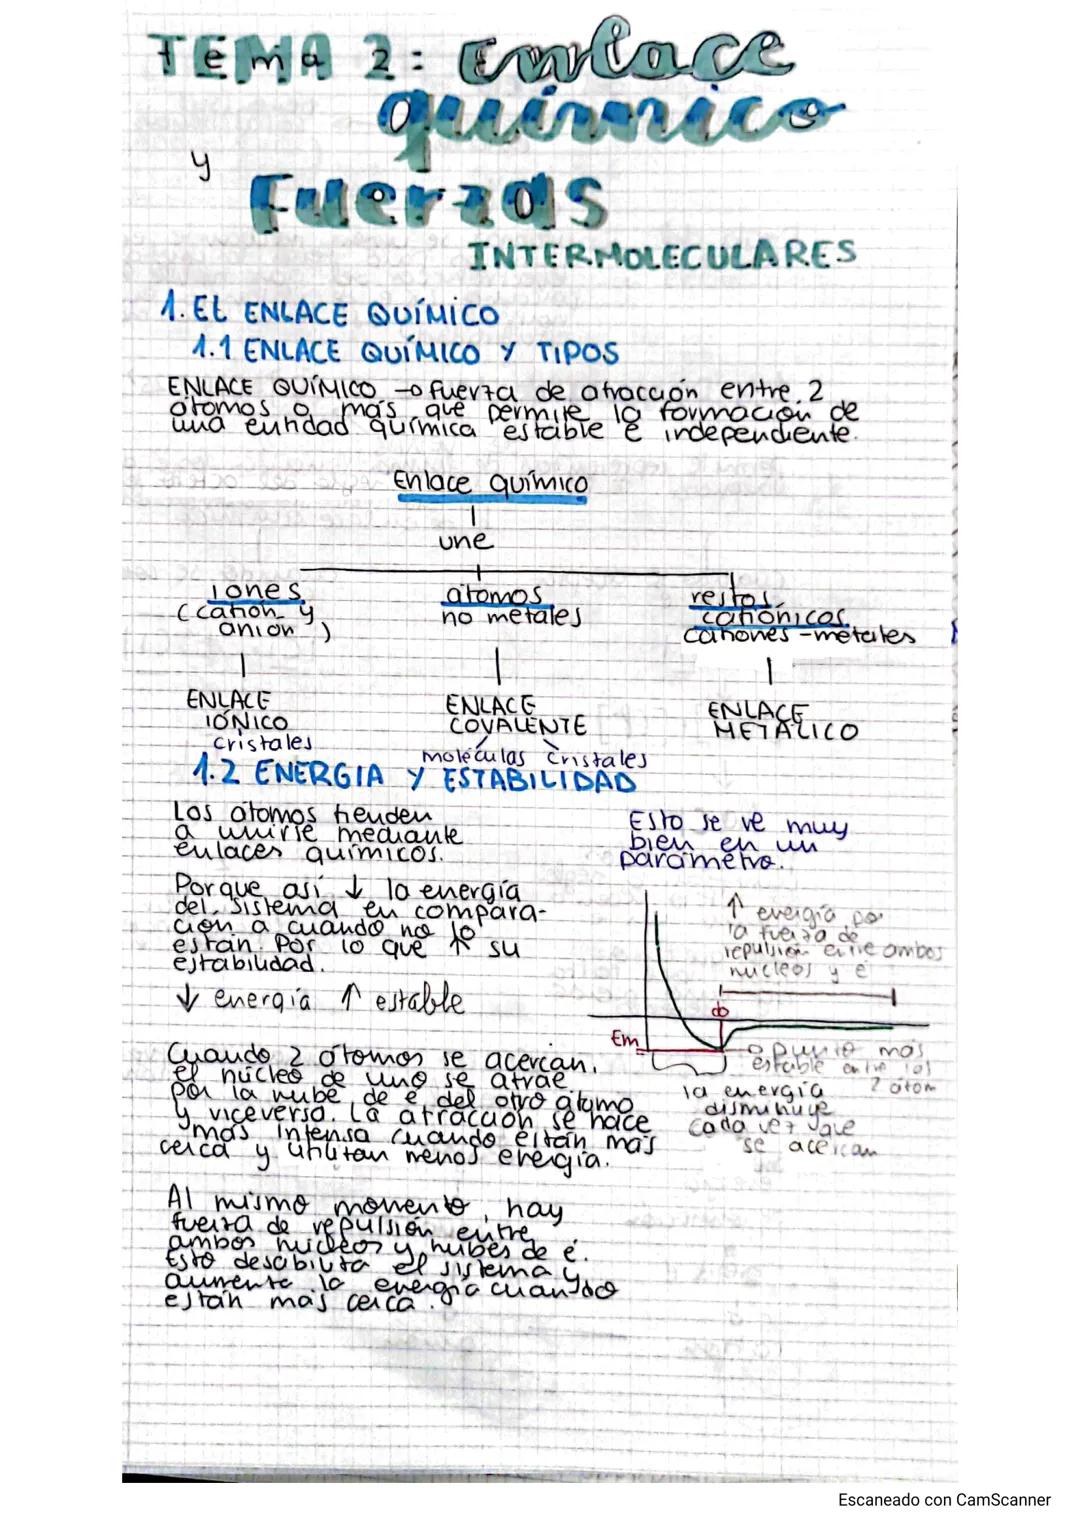 TEMA 2: Enlace
químico
y
Fuerzas
INTERMOLECULARES
1. EL ENLACE QUÍMICO
1.1 ENLACE QUÍMICO Y TIPOS
ENLACE QUÍMICO → fuerza de atracción entre 2
átomos o más que permite la formación de
una entidad química estable e independiente.
Enlace químico
une
iones
(catión y
anión)
átomos
no metales
restos
catiónicos
cationes-metales
ENLACE
IÓNICO
cristales
ENLACE
COVALENTE
moléculas cristales
ENLACE
METÁLICO
1.2 ENERGIA Y ESTABILIDAD
Los átomos tienden
a unirse mediante
enlaces químicos.
Porque así ↓ la energía
del sistema en compara-
ción a cuando no lo
están. Por lo que ↑ su
estabilidad.
↓ energía ↑ estable
Esto se ve muy
bien en un
parámetro.
↑ energía por
la fuerza de
repulsión entre ambos
núcleos y é
Em
punto más
estable entre los
2 átom
la energía
disminuye
cada vez que
se acercan
Cuando 2 átomos se acercan,
el núcleo de uno se atrae
por la nube de é del otro átomo
y viceversa. La atracción se hace
más intensa cuando están más
cerca y utilizan menos energía.
Al mismo momento, hay
fuerza de repulsión entre
ambos núcleos y nubes de é.
Esto desabiliza el sistema y
aumenta la energía cuando
están más cerca.
Escaneado con CamScanner